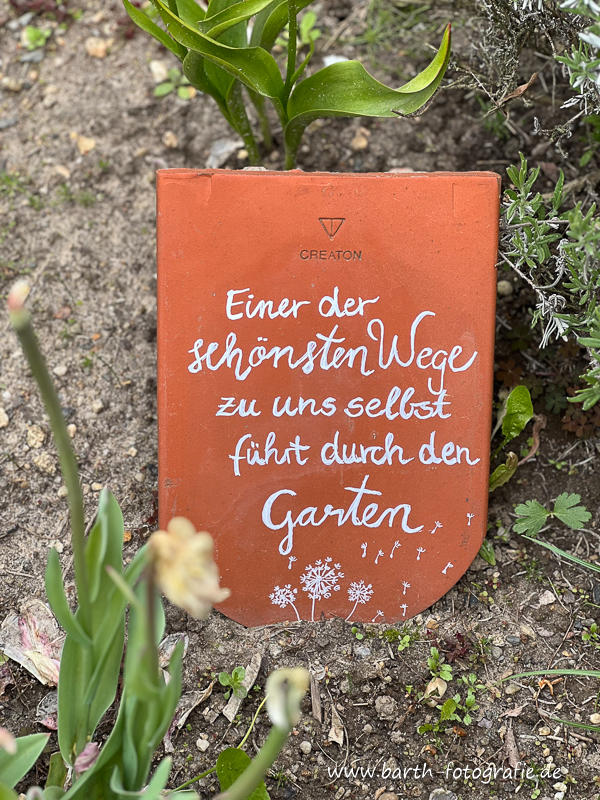 CREATON
Einer der
schönsten Wege
zu uns selbst
führt durch den
Garten
www.barth-fotografie.de